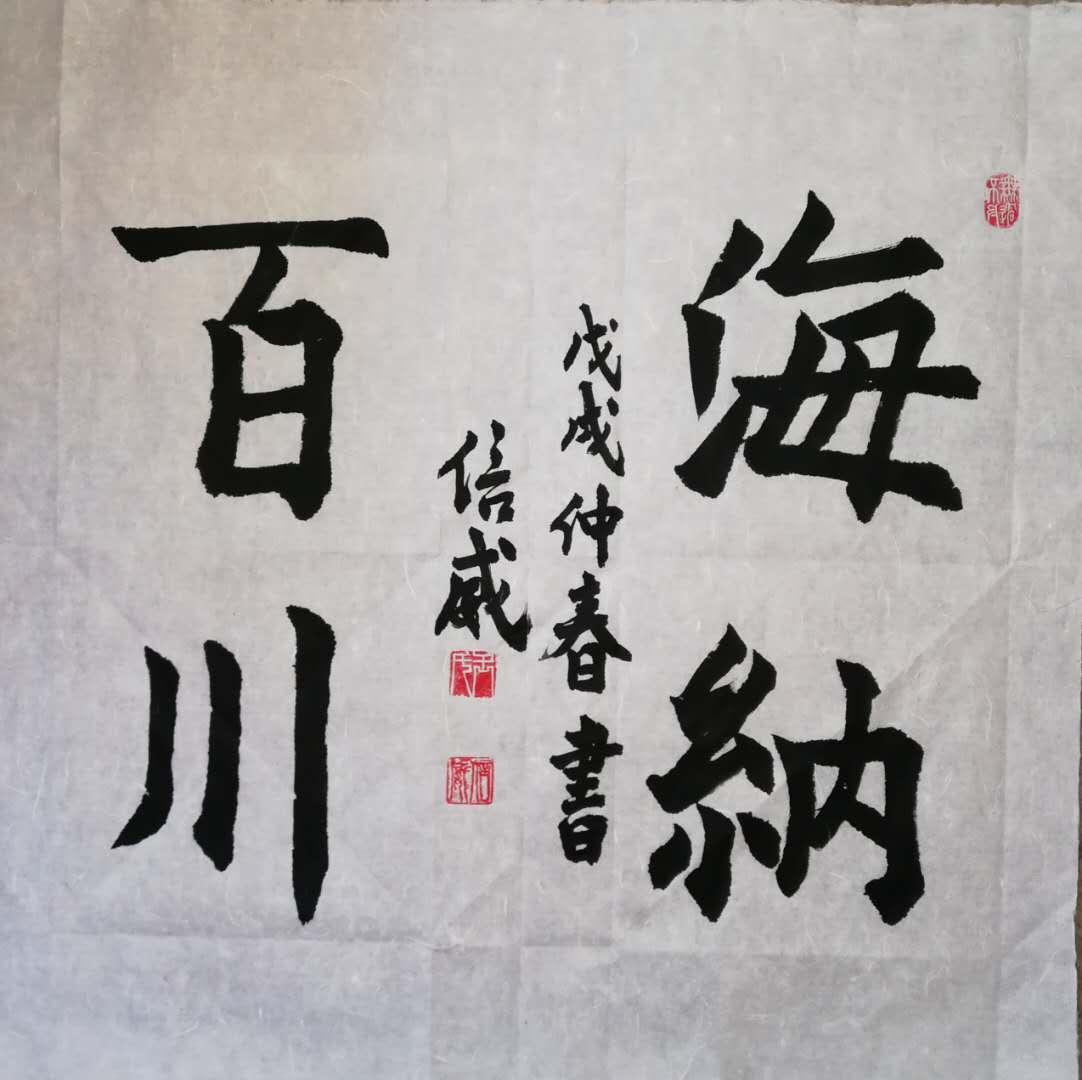 海納
百川
戊戌仲春書
信威
信威